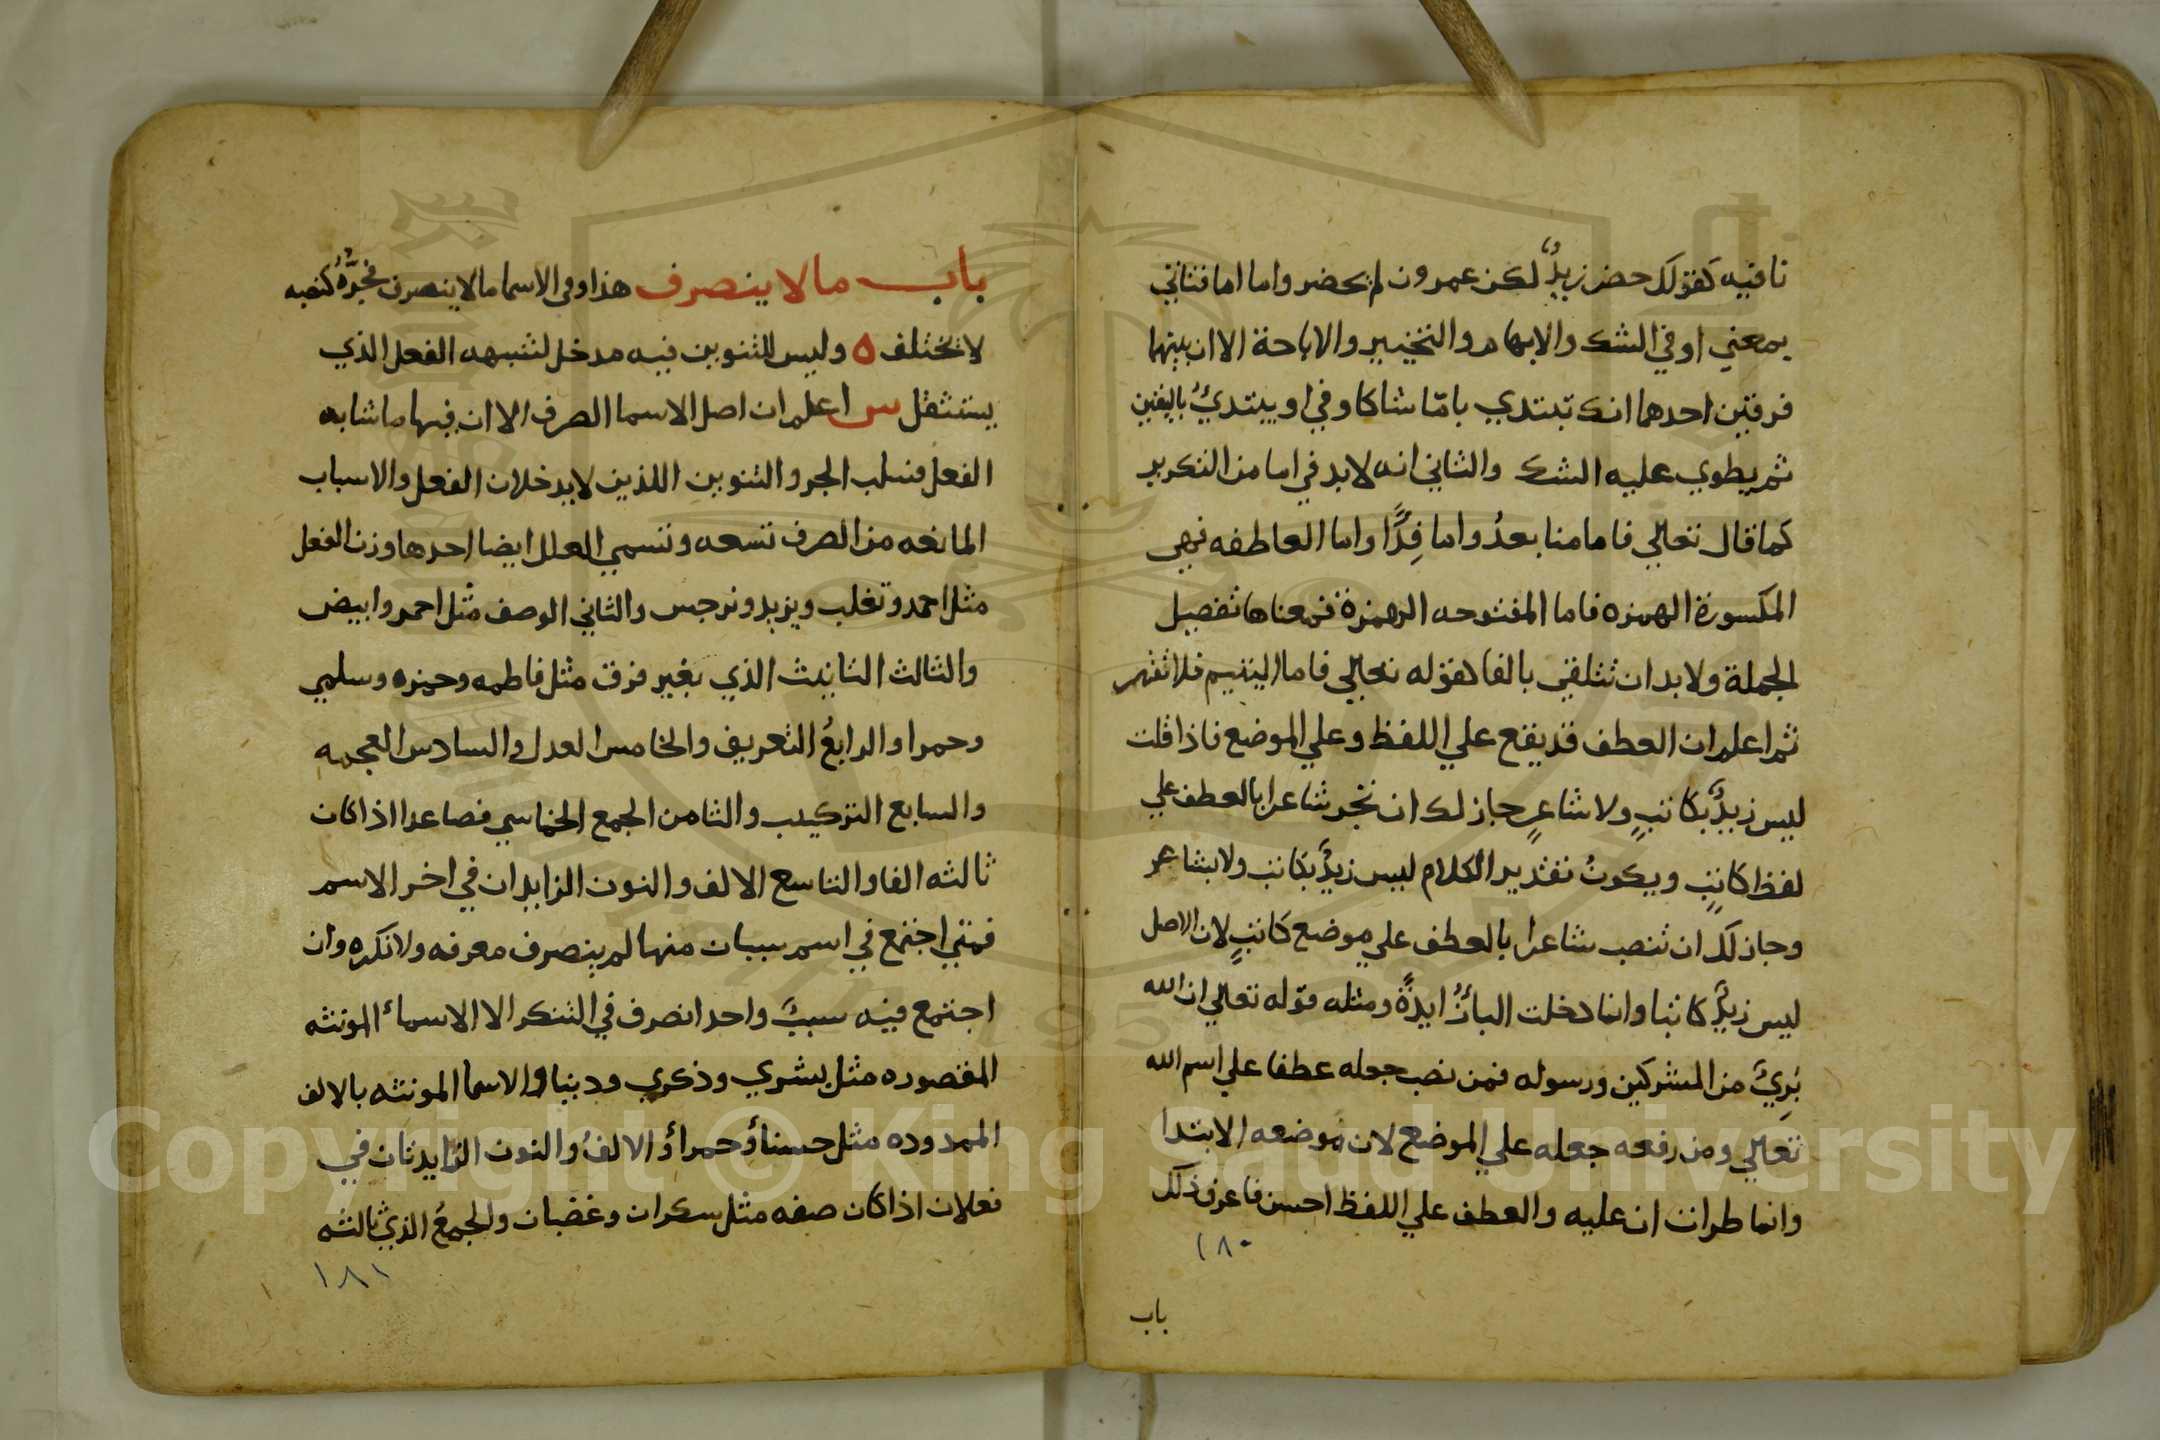 نافيه كقولك حضر زيدٌ لكن عمرون لم يحضر واما اما فتاتي
بمعني او في الشك والابهام والتخيير والاباحة الا ان بينهما
فرقين احدهما انك تبتدي باما شاكا وفي او يبتديُ باليقين
ثم يطوي عليه الشك والثاني انه لابد في اما من التكرير
كما قال تعالي فاما منا بعدُ واما فِدًا واما العاطفه فهي
المكسورة الهمزه فاما المفتوحه الهمزة فمعناها تفصيل
الجملة ولابد ان تتلقي بالفا كقوله تعالي فاما اليتيم فلا تقهر
ثم اعلم ان العطف قد يقع علي اللفظ وعلي الموضع فاذا قلت
ليس زيدٌ بكاتبٍ ولا شاعرٍ جاز لك ان تجر شاعرا بالعطف علي
لفظ كاتبٍ ويكونُ تقدير الكلام ليس زيدٌ بكاتب ولا بشاعر
وجاز لك ان تنصب شاعرا بالعطف علي موضع كاتبٍ لان الاصل
ليس زيدٌ كاتبا وانما دخلت البا زايدةً ومثله قوله تعالي ان الله
بَرِيٌ من المشركين ورسوله فمن نصب جعله عطفا علي اسم الله
تعالي ومن رفعه جعله علي الموضع لان موضعه الابتدا
وانما طرات ان عليه والعطف علي اللفظ احسن فاعرف ذلك
١٨٠
باب
باب ما لا ينصرف هذا وفي الاسما ما لا ينصرف فجرُّهُ كنصبه
لا يختلف ه وليس للتنوين فيه مدخل لشبهه الفعل الذي
يستثقل س اعلم ان اصل الاسما الصرف الا ان فيها ما شابه
الفعل فسلب الجر والتنوين اللذين لا يدخلان الفعل والاسباب
المانعه من الصرف تسعه وتسمي العلل ايضا احدها وزن الفعل
مثل احمد وتغلب ويزيد ونرجس والثاني الوصف مثل احمر وابيض
والثالث التانيث الذي بغير فرق مثل فاطمه وحمزه وسلمي
وحمرا والرابعُ التعريف والخامس العدل والسادس العجمه
والسابع التركيب والثامن الجمع الخماسي فصاعدا اذا كان
ثالثه الفا والتاسع الالف والنون الزايدان في اخر الاسم
فمتي اجتمع في اسم سببان منها لم ينصرف معرفه ولا نكره وان
اجتمع فيه سببٌ واحد انصرف في التنكر الا الاسماء المونثه
المقصوره مثل بشري وذكري ودنيا والاسما المونثه بالالف
الممدوده مثل حسناؤ حمراؤ الالفُ والنون الزايدتان في
فعلان اذا كان صفه مثل سكران وغضبان والجمعُ الذي ثالثه
١٨١
Copyright © King Saud University